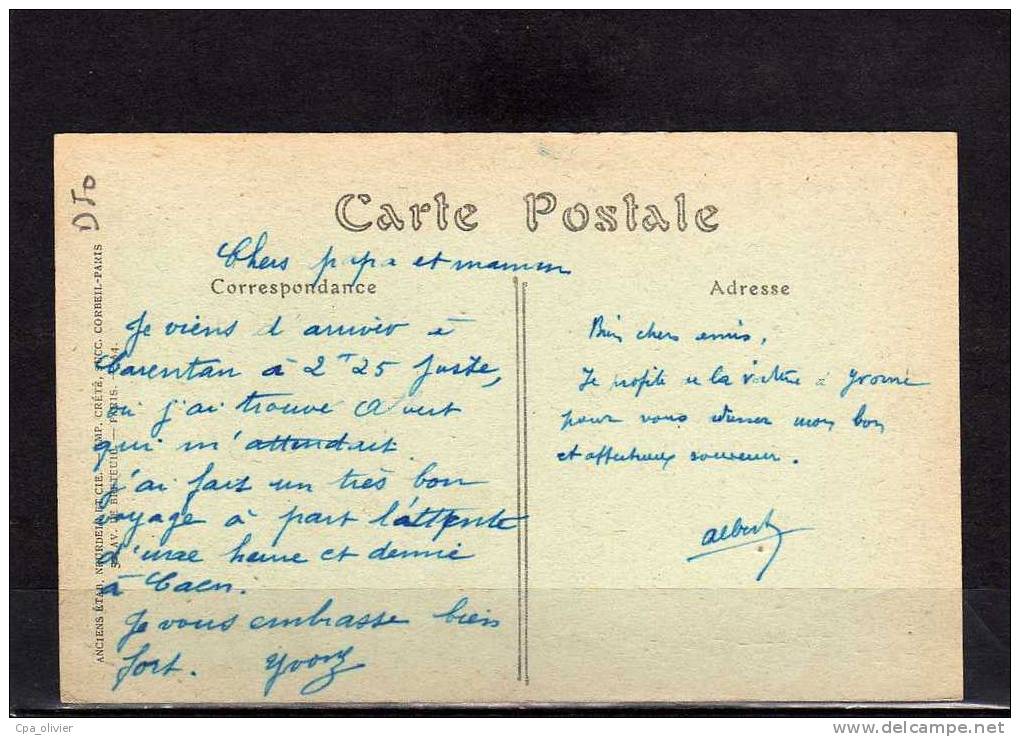 D50
Carte Postale
Chers papa et maman
Correspondance
Je viens d'arriver à
Carentan à 2 25 juste,
où j'ai trouvé
qui m'attendait.
j'ai fait un très bon
voyage à part l'attente
d'une heure et demie
à Caen.
Je vous embrasse bien
fort. Yvonne
Adresse
Bien chers amis,
Je profite de la de Yvonne
pour vous donner mon bon
et affectueux souvenir.
Albert
ANCIENS ÉTAB. NEURDEIN ET CIE. IMP. CRÉTÉ, SUCC. CORBEIL-PARIS
AV. DE BRETEUIL — PARIS.
Cpa_olivier
www.delcampe.net